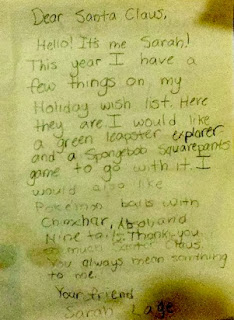 Dear Santa Claus,
Hello! It's me Sarah!
This year I have a
few things on my
Holiday wish list. Here
they are. I would like
a green leapster explorer
and a Spongebob Squarepants
game to go with it. I
would also like
Pokemon balls with
and
Nine tails. Thank you
so much Santa Claus.
You always mean something
to me.
Your friend
Sarah Lage